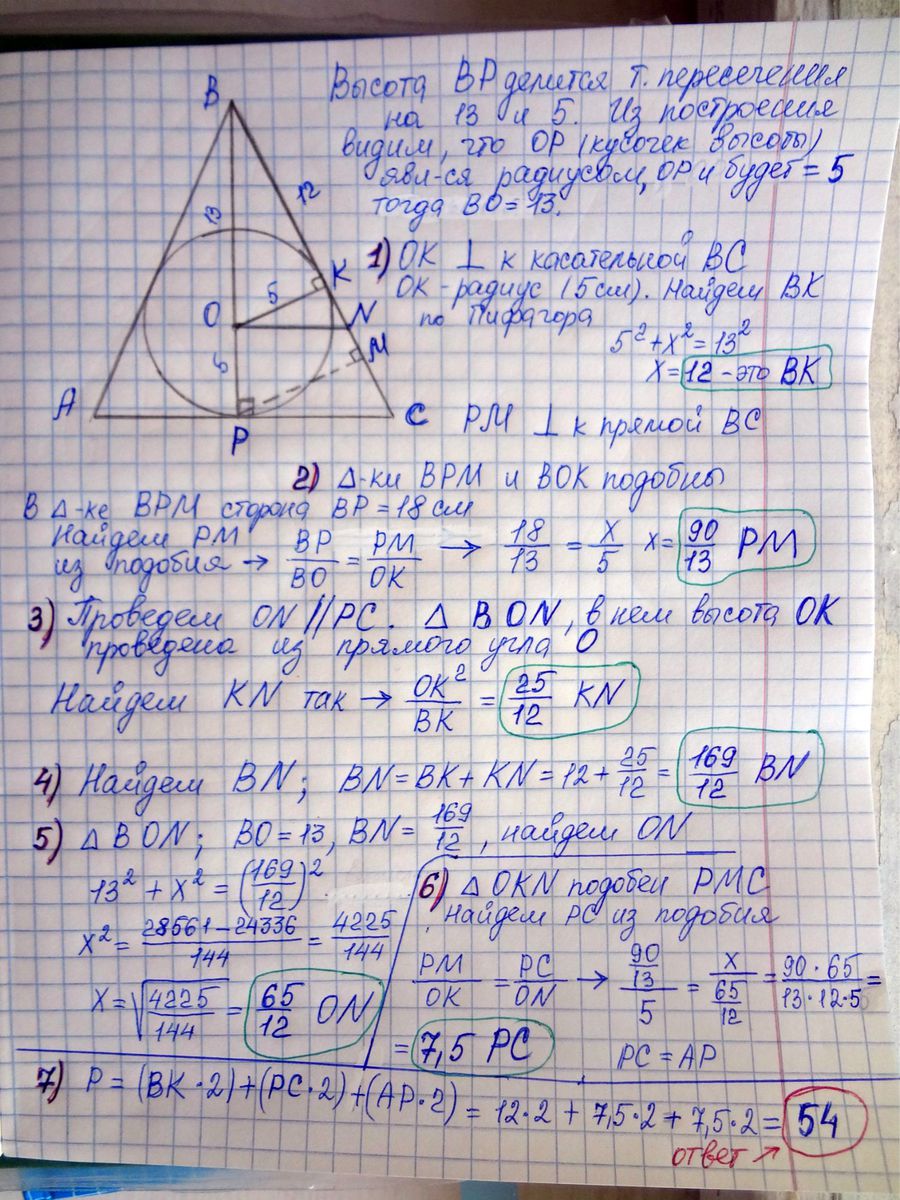 Высота BP делится т. пересечения
на 13 и 5. Из построения
видим, что OP (кусочек высоты)
явл-ся радиусом, OP и будет = 5
тогда BO = 13.
B
13
12
K
5
O
N
M
5
A
P
C
1) OK ⊥ к касательной BC
OK - радиус (5см). Найдем BK
по Пифагора
5² + x² = 13²
x = 12 - это BK
PM ⊥ к прямой BC
2) Δ-ки BPM и BOK подобны
В Δ-ке BPM сторона BP = 18 см
Найдем PM
из подобия → BP/BO = PM/OK → 18/13 = x/5 x = 90/13 PM
3) Проведем ON // PC. Δ BON, в нем высота OK
проведена из прямого угла O
Найдем KN так → OK²/BK = 25/12 KN
4) Найдем BN; BN = BK + KN = 12 + 25/12 = 169/12 BN
5) Δ BON; BO = 13, BN = 169/12, найдем ON
13² + x² = (169/12)²
x² = 28561 - 24336/144 = 4225/144
x = √4225/144 = 65/12 ON
6) Δ OKN подобен PMC
Найдем PC из подобия
PM/OK = PC/ON → 90/13/5 = x/65/12 = 90·65/13·12·5 =
= 7,5 PC
PC = AP
7) P = (BK·2) + (PC·2) + (AP·2) = 12·2 + 7,5·2 + 7,5·2 = 54
ответ ↗